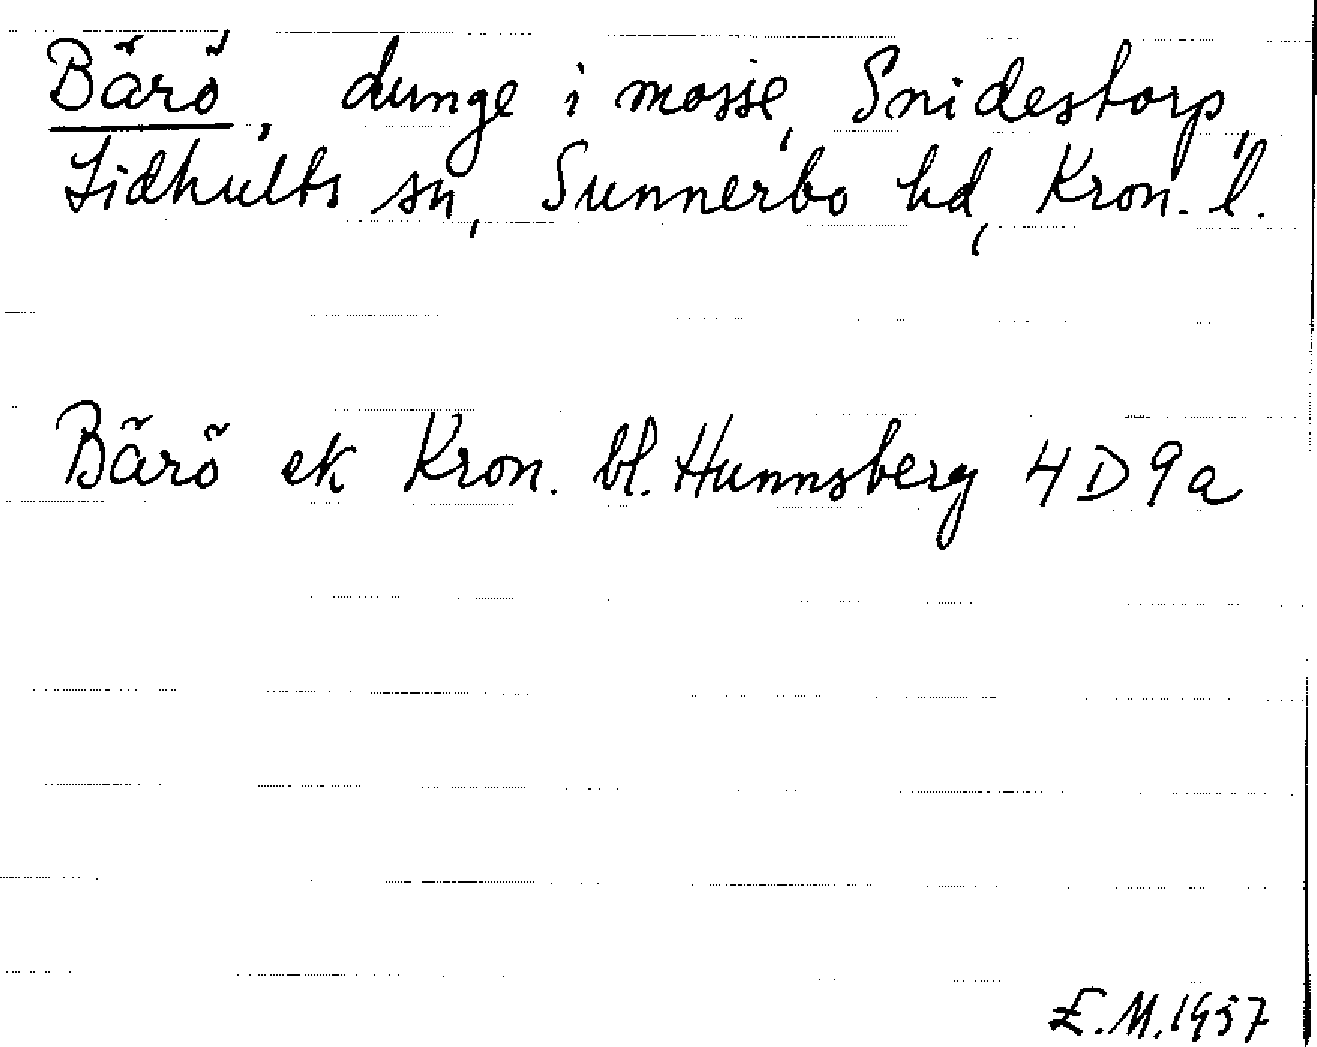 Bärö, dunge i mosse, Snidestorp,
Lidhults sn, Sunnerbo hd, Kron. l.
Bärö ek Kron. bl. Hunnsberg 4D9a
E.M. 1957